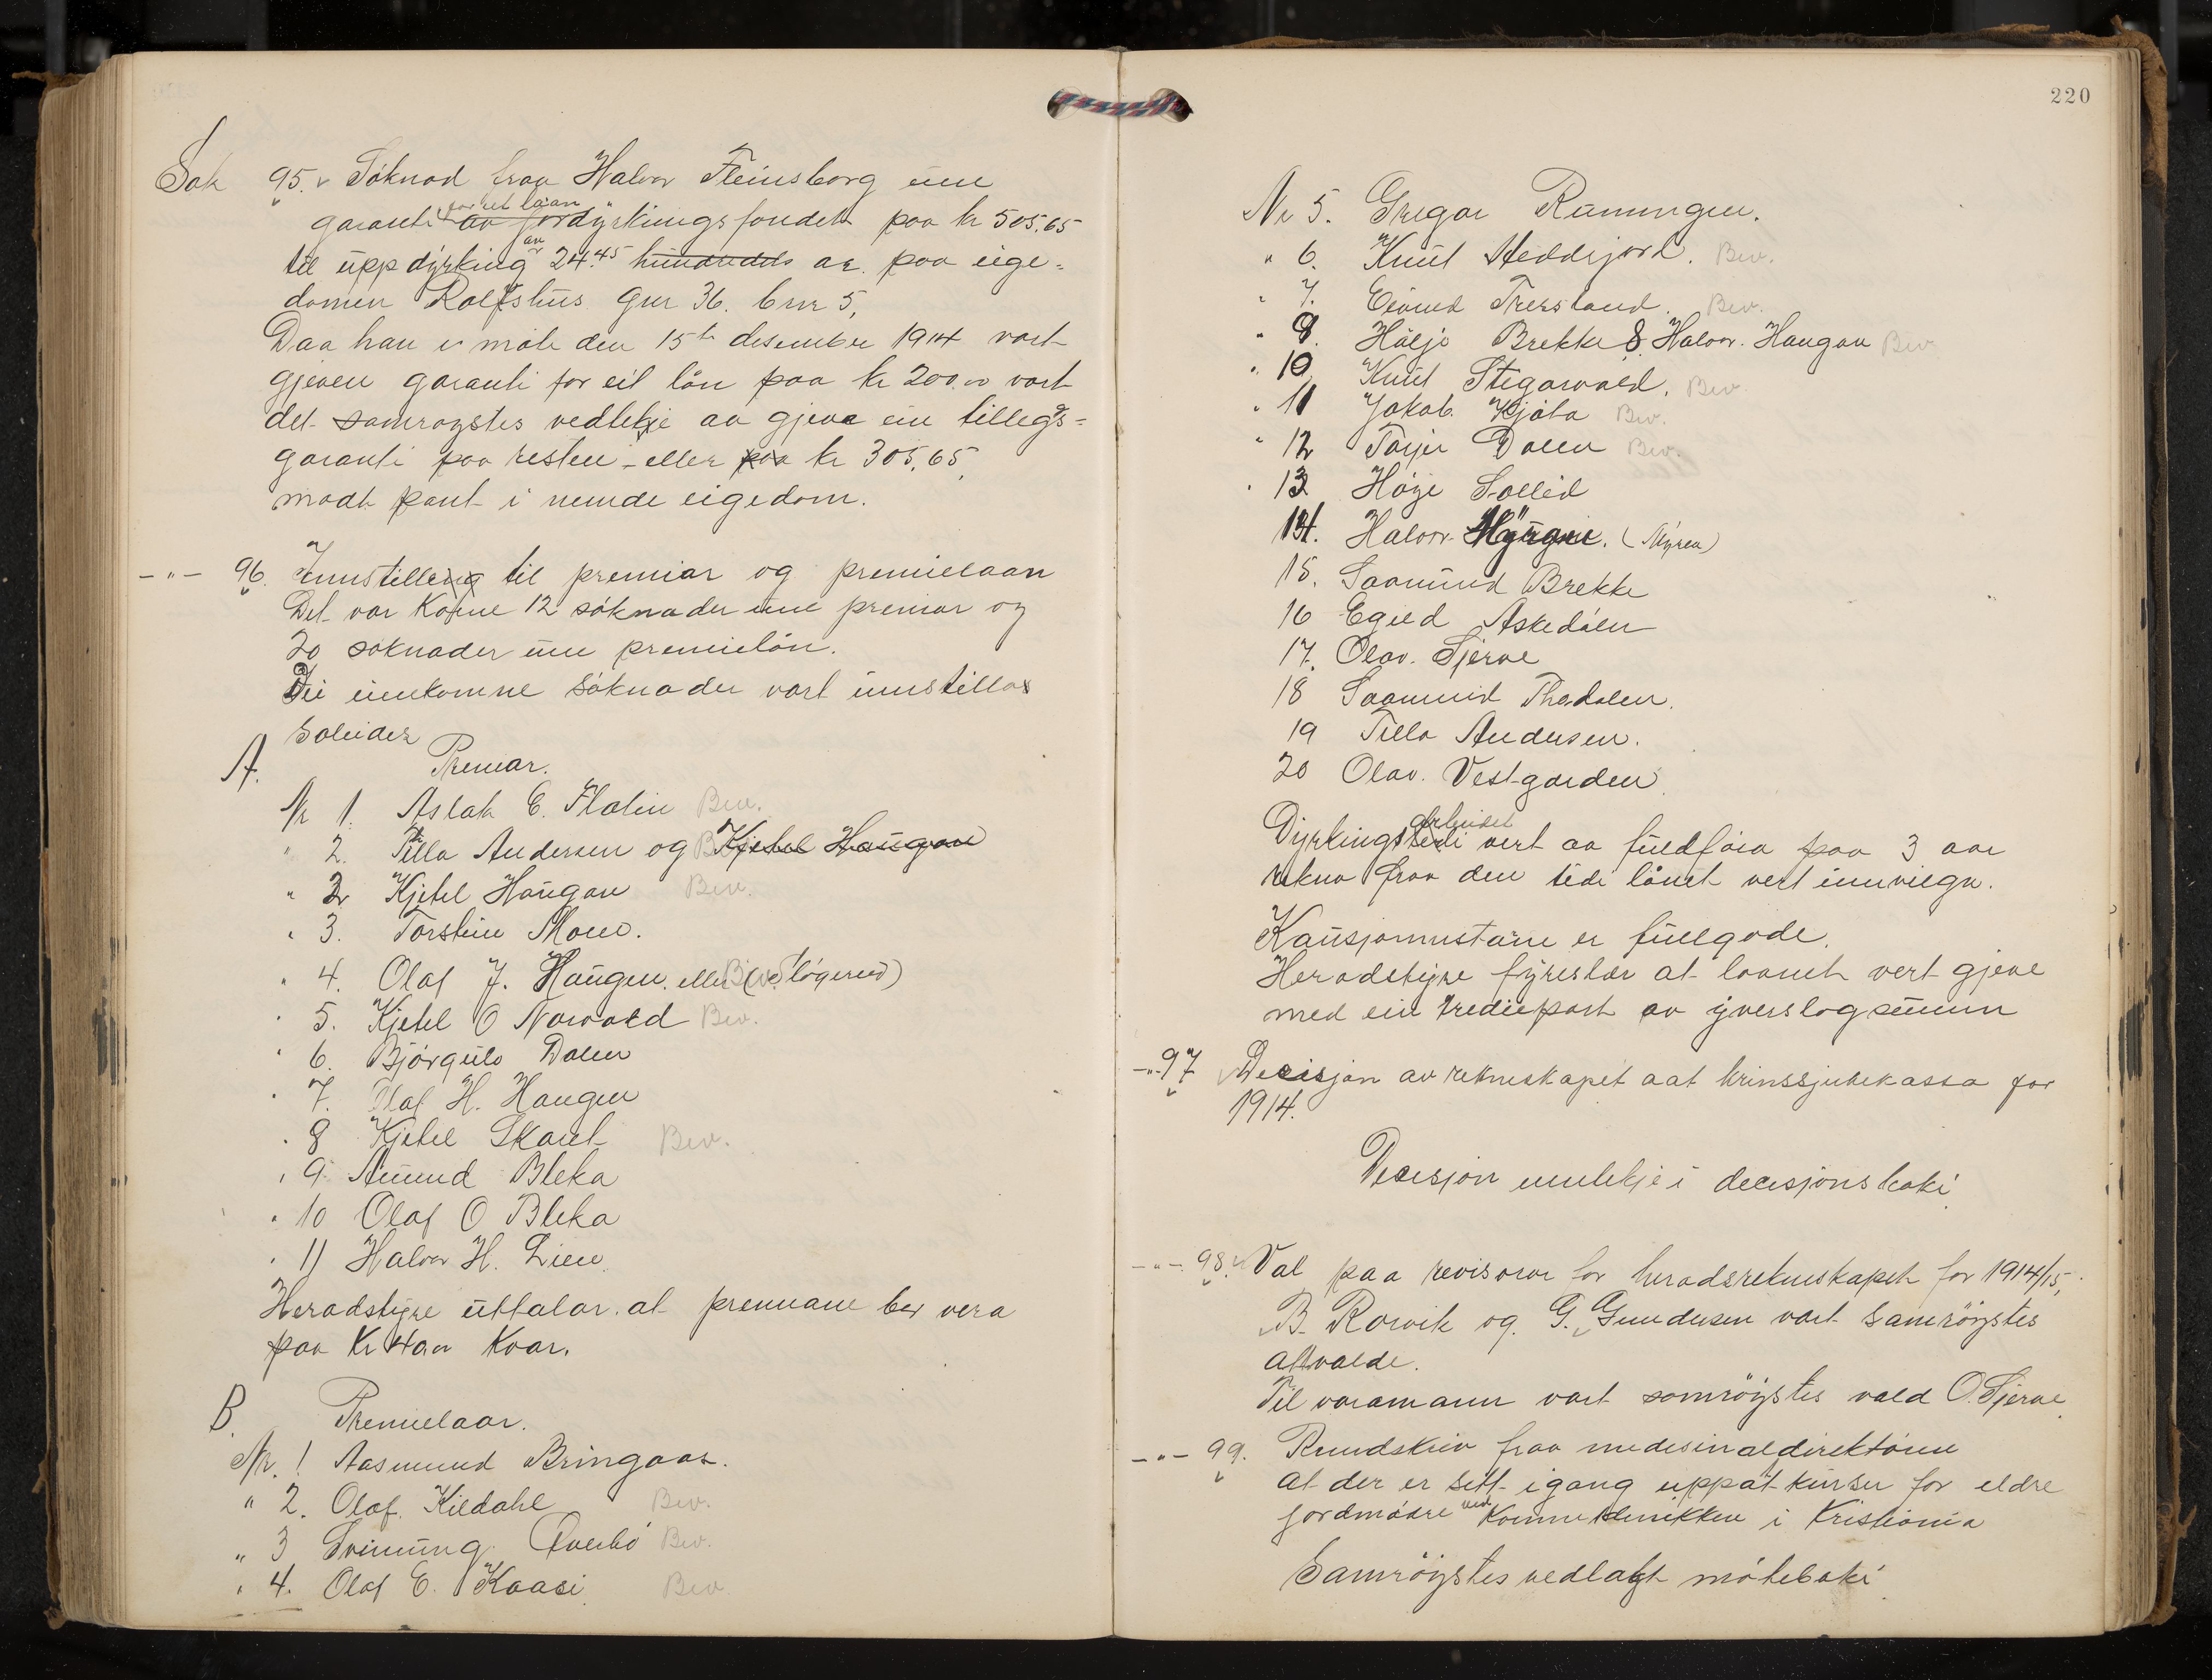 Sak 95. Söknad fraa Halvor Fleinsborg um
garanti for eit laan av jordyrkingsfondet paa kr 505.65
til uppdyrking av 24.45 hundredels ar. paa eige-
domen Rolfshus gnr 36. bnr 5,
Daa han i möte den 15de desember 1914 vart
gjeven garanti for eit lön paa kr 200.00 vart
det samrøystes vedtekje aa gjeva ein tillegs-
garanti paa resten - eller paa kr 305,65,
modt pant i nemde eigedom.
-"- 96. Innstilling til premiar og premielaan
Det var Kome 12 söknader um premiar og
20 söknader um premielön.
Dei innkomne söknader vart innstillas
soleides
A. Premiar.
Nr 1. Aslak E. Flatin Bev.
" 2. Tilla Andersen og Kjetel Haugan
" 2 Kjetel Haugan Bev.
" 3. Torstein Moen.
" 4. Olaf J. Haugen. eller Bev.
" 5. Kjetel O Norvald Bev.
" 6. Björgulv Dalen
" 7. Olaf H. Haugen
" 8 Kjetel Skart Bev.
" 9. Amund Bleka
" 10 Olaf O Bleka
" 11 Halvor H. Lien.
Heradstyre uttalar at premiane bør vera
paa Kr 40.00 kvar.
B. Premielaar.
Nr. 1 Aasmund Bringaas.
" 2. Olaf. Kildahl Bev.
" 3 Sveinung Överbö Bev.
" 4. Olaf E. Kaasi Bev.
220
Nr 5. Gregar Runingen.
" 6. Knut Heddejord. Bev.
" 7. Eivind Bev.
" 8. Hölje Brekke & Halvor Haugan Bev
" 10 Knut Stegarvald. Bev.
" 11 Jakob Kjåta Bev.
" 12 Tarjei Dalen Bev.
" 13 Höge Sollid
14. Halvor Haugen. (Myren)
15. Saamund Brekke
16 Egild Askedalen
17. Olav. Tjerve
18 Saamund Thodalen.
19 Tilla Andersen.
20 Olav. Vestgarden
Dyrkingsarbeidet vert aa fuldföra paa 3 aar
rekna fraa den tidi lånet vert innvilga.
Kausjonnistane er fullgode.
Heradstyre fyreslær at laanet vert gjeve
med ein trediepart av yverslagsummen
-"- 97 Decisjon av rekneskapet aat krinssjukekassa for
1914.
Decisjon inntekje i decisjonsboki
-"- 98. Val paa revisorar for heradsrekneskapet for 1914/15,
B. Rorvik og G. Gundersen vart samröystes
attvalde.
Til varamann vart samröystes vald O. Tjerve
-"- 99. Rundskriv fraa medesinaldirektören
at der er sett igang uppatkurser for eldre
jordmødre ved Kvinneklinikken i Kristiania
Samröystes vedlagt möteboki